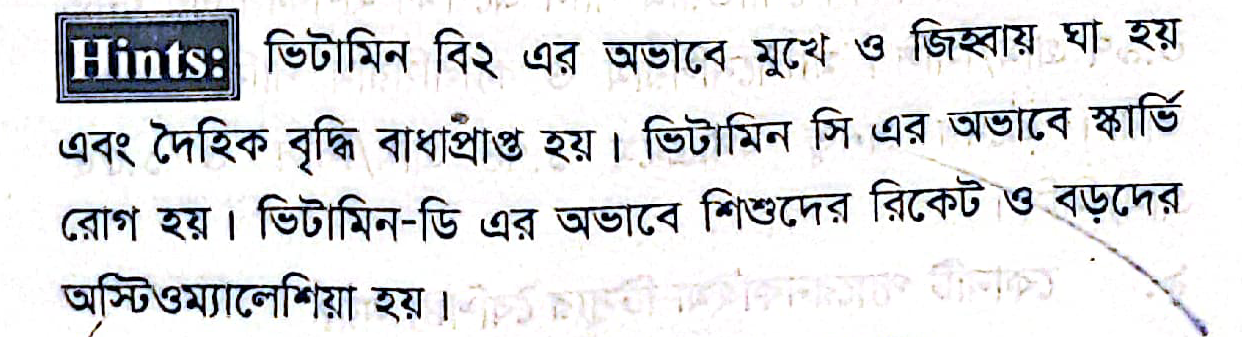 Hints: ভিটামিন বি২ এর অভাবে মুখে ও জিহ্বায় ঘা হয়
এবং দৈহিক বৃদ্ধি বাধাপ্রাপ্ত হয়। ভিটামিন সি এর অভাবে স্কার্ভি
রোগ হয়। ভিটামিন-ডি এর অভাবে শিশুদের রিকেট ও বড়দের
অস্টিওম্যালেশিয়া হয়।